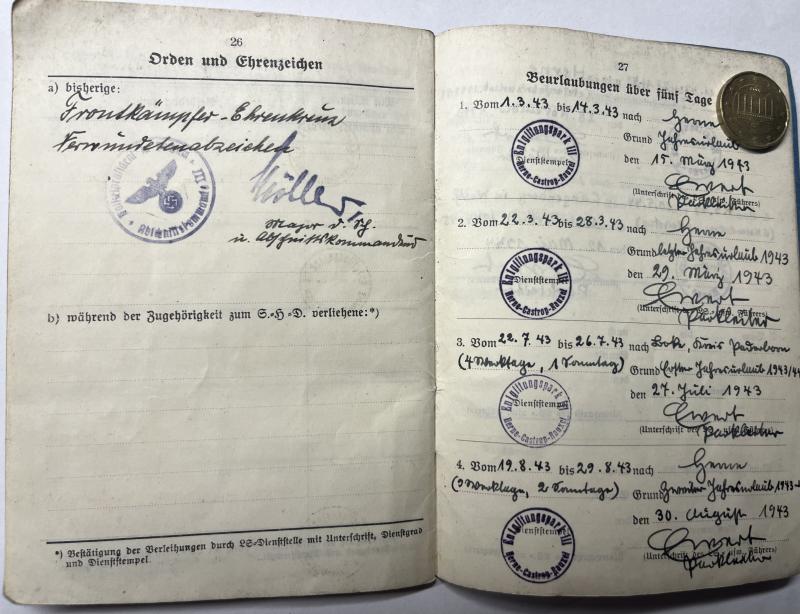 26
Orden und Ehrenzeichen
a) bisherige:
Frontkämpfer-Ehrenkreuz
Verwundetenabzeichen
Abschnittskommando III
Möller,
Major d. Sch.
u. Abschnittskommandeur
b) während der Zugehörigkeit zum S.-H-D. verliehene:*)
*) Bestätigung der Verleihungen durch LS-Dienststelle mit Unterschrift, Dienstgrad
und Dienststempel.
27
Beurlaubungen über fünf Tage
1. Vom 1.3.43 bis 14.3.43 nach Herne
Grund Jahresurlaub
Entgiftungspark III
Herne-Castrop-Rauxel
Dienststempel
den 15. März 1943
Ewert
(Unterschrift des Führers)
Parkleiter
2. Vom 22.3.43 bis 28.3.43 nach Herne
Grund letzter Jahresurlaub 1943
Entgiftungspark III
Herne-Castrop-Rauxel
Dienststempel
den 29. März 1943
Ewert
(Unterschrift des Führers)
Parkleiter
3. Vom 22.7.43 bis 26.7.43 nach Boke, Kreis Paderborn
(4 Werktage, 1 Sonntag) Grund Erster Jahresurlaub 1943/44
Entgiftungspark III
Herne-Castrop-Rauxel
Dienststempel
den 27. Juli 1943
Ewert
(Unterschrift des
Parkleiter
4. Vom 19.8.43 bis 29.8.43 nach Herne
(9 Werktage, 2 Sonntage) Grund Zweiter Jahresurlaub 1943-
Entgiftungspark III
Herne-Castrop-Rauxel
den 30. August 1943
Ewert
(Unterschrift des Führers)
Parkleiter